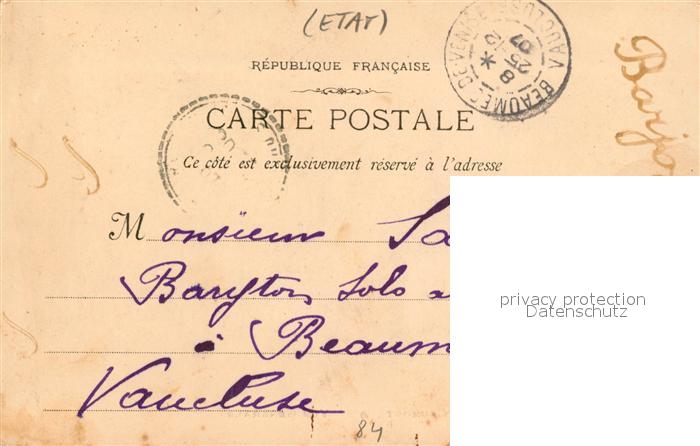 (ETAT)
RÉPUBLIQUE FRANÇAISE
BEAUMES DE VENISE
VAUCLUSE
8
25 12
07
CARTE POSTALE
Ce côté est exclusivement réservé à l'adresse
Monsieur Sa
Baryton Solo
à Beaum
Vaucluse
84
privacy protection
Datenschutz